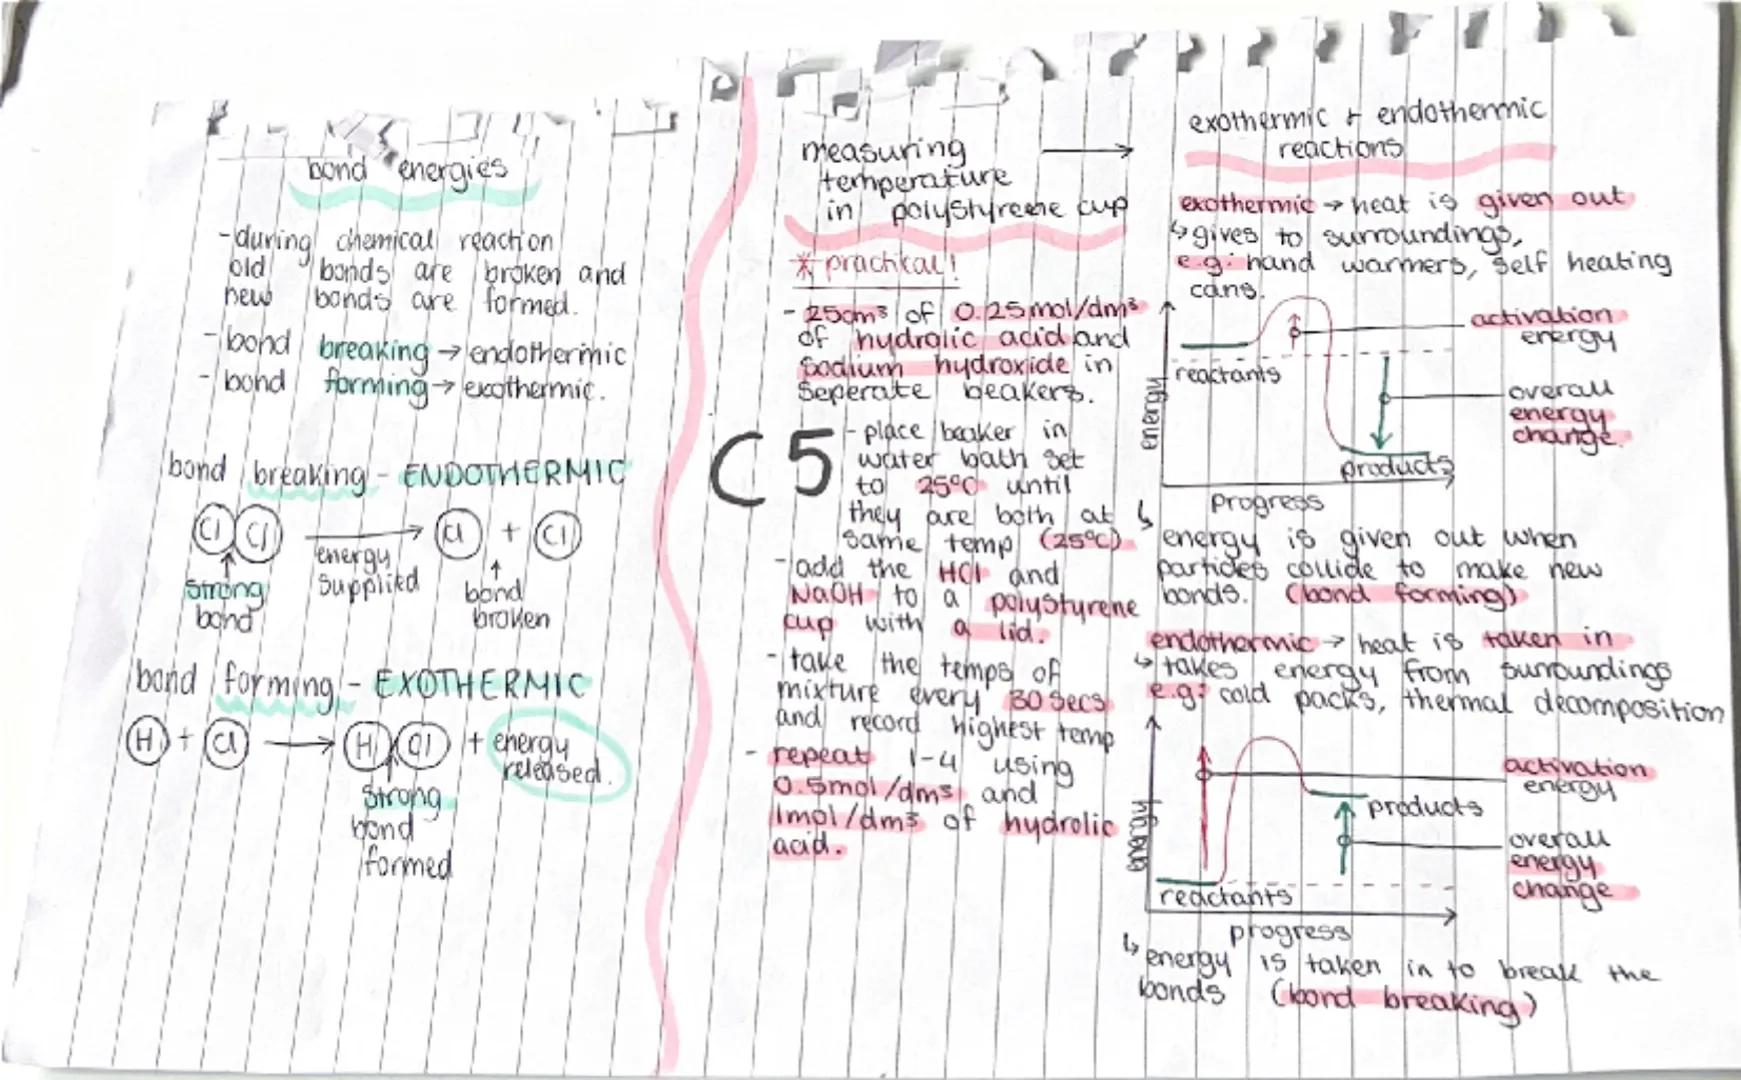 bond energies
-during chemical reaction
old bonds are broken and
new bonds are formed.
-bond breaking → endothermic
-bond forming → exothermic.
bond breaking - ENDOTHERMIC
Cl Cl energy supplied → Cl + Cl
strong
bond
bond
broken
bond forming - EXOTHERMIC
H + Cl → H Cl + energy
released.
strong
bond
formed
C5
measuring →
temperature
in polystyrene cup
* practical!
- 25cm³ of 0.25mol/dm³
of hydrolic acid and
sodium hydroxide in
seperate beakers.
-place beaker in
water bath set
to 25°C until
they are both at
same temp (25°C)
-add the HCl and
NaOH to a polystyrene
cup with a lid.
-take the temps of
mixture every 30 secs
and record highest temp
- repeat 1-4 using
0.5mol/dm³ and
1mol/dm³ of hydrolic
acid.
exothermic + endothermic
reactions
exothermic → heat is given out
↳ gives to surroundings,
e.g: hand warmers, self heating
cans.
activation
energy
reactants
energy
overall
energy
change.
products
progress
↳ energy is given out when
particles collide to make new
bonds. (bond forming)
endothermic → heat is taken in
↳ takes energy from surroundings
e.g: cold packs, thermal decomposition
activation
energy
products
energy
overall
energy
change
reactants
progress
↳ energy is taken in to break the
bonds (bond breaking)